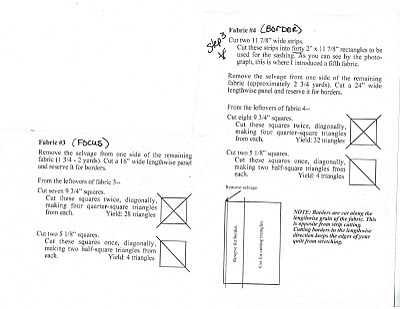 Fabric #4 (BORDER)
Step 3
Cut two 11 7/8" wide strips.
Cut these strips into forty 2" x 11 7/8" rectangles to be
used for the sashing. As you can see by the photo-
graph, this is where I introduced a fifth fabric.
Remove the selvage from one side of the remaining
fabric (approximately 2 3/4 yards). Cut a 24" wide
lengthwise panel and reserve it for borders.
From the leftovers of fabric 4--
Cut eight 9 3/4" squares.
Cut these squares twice, diagonally,
making four quarter-square triangles
from each. Yield: 32 triangles
Cut two 5 1/8" squares.
Cut these squares once, diagonally,
making two half-square triangles from
each. Yield: 4 triangles
Remove selvage.
Reserve for border.
Use for cutting triangles.
NOTE: Borders are cut along the
lengthwise grain of the fabric. This
is opposite from strip cutting.
Cutting borders in the lengthwise
direction keeps the edges of your
quilt from stretching.
Fabric #3 (FOCUS)
Remove the selvage from one side of the remaining
fabric (1 3/4 - 2 yards). Cut a 16" wide lengthwise panel
and reserve it for borders.
From the leftovers of fabric 3--
Cut seven 9 3/4" squares.
Cut these squares twice, diagonally,
making four quarter-square triangles
from each. Yield: 28 triangles
Cut two 5 1/8" squares.
Cut these squares once, diagonally,
making two half-square triangles from
each. Yield: 4 triangles